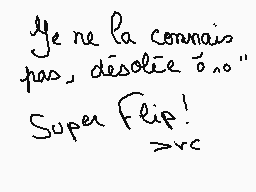 Je ne la connais
pas, désolée ö,o"
Super Flip!
>vc